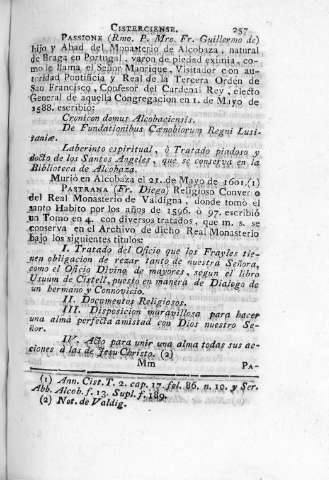 CISTERCIENSE. 257
PASSIONE (Rmo. P. Mro. Fr. Guillermo de)
hijo y Abad del Monasterio de Alcobaza, natural
de Braga en Portugal, varon de piedad eximia, co-
mo le llama el Señor Manrique, Visitador con au-
toridad Pontificia y Real de la Tercera Orden de
San Francisco, Confesor del Cardenal Rey, electo
General de aquella Congregacion en 1. de Mayo de
1588. escribió:
Cronicon domus Alcobaciensis.
De Fundationibus Cænobiorum Regni Lusi-
taniæ.
Laberinto espiritual, ò Tratado piadoso y
docto de los Santos Angeles, que se conserva en la
Biblioteca de Alcobaza.
Murió en Alcobaza el 21. de Mayo de 1601. (1)
PASTRANA (Fr. Diego) Religioso Converso
del Real Monasterio de Valdigna, donde tomó el
santo Habito por los años de 1596. ò 97. escribió
un Tomo en 4. con diversos tratados, que m. s. se
conserva en el Archivo de dicho Real Monasterio
bajo los siguientes titulos:
I. Tratado del Oficio que los Frayles tie-
nen obligacion de rezar tanto de nuestra Señora,
como el Oficio Divino de mayores, segun el libro
Usuum de Cistell, puesto en manera de Dialogo de
un hermano y Connovicio.
II. Documentos Religiosos.
III. Disposicion maravillosa para hacer
una alma perfecta amistad con Dios nuestro Se-
ñor.
IV. Acto para unir una alma todas sus ac-
ciones à las de Jesu Christo. (2)
Mm PA-
(1) Ann. Cist. T. 2. cap. 17. fol. 86. n. 10. y Ser.
Abb. Alcob. f. 13. Supl. f. 189.
(2) Not. de Valdig.